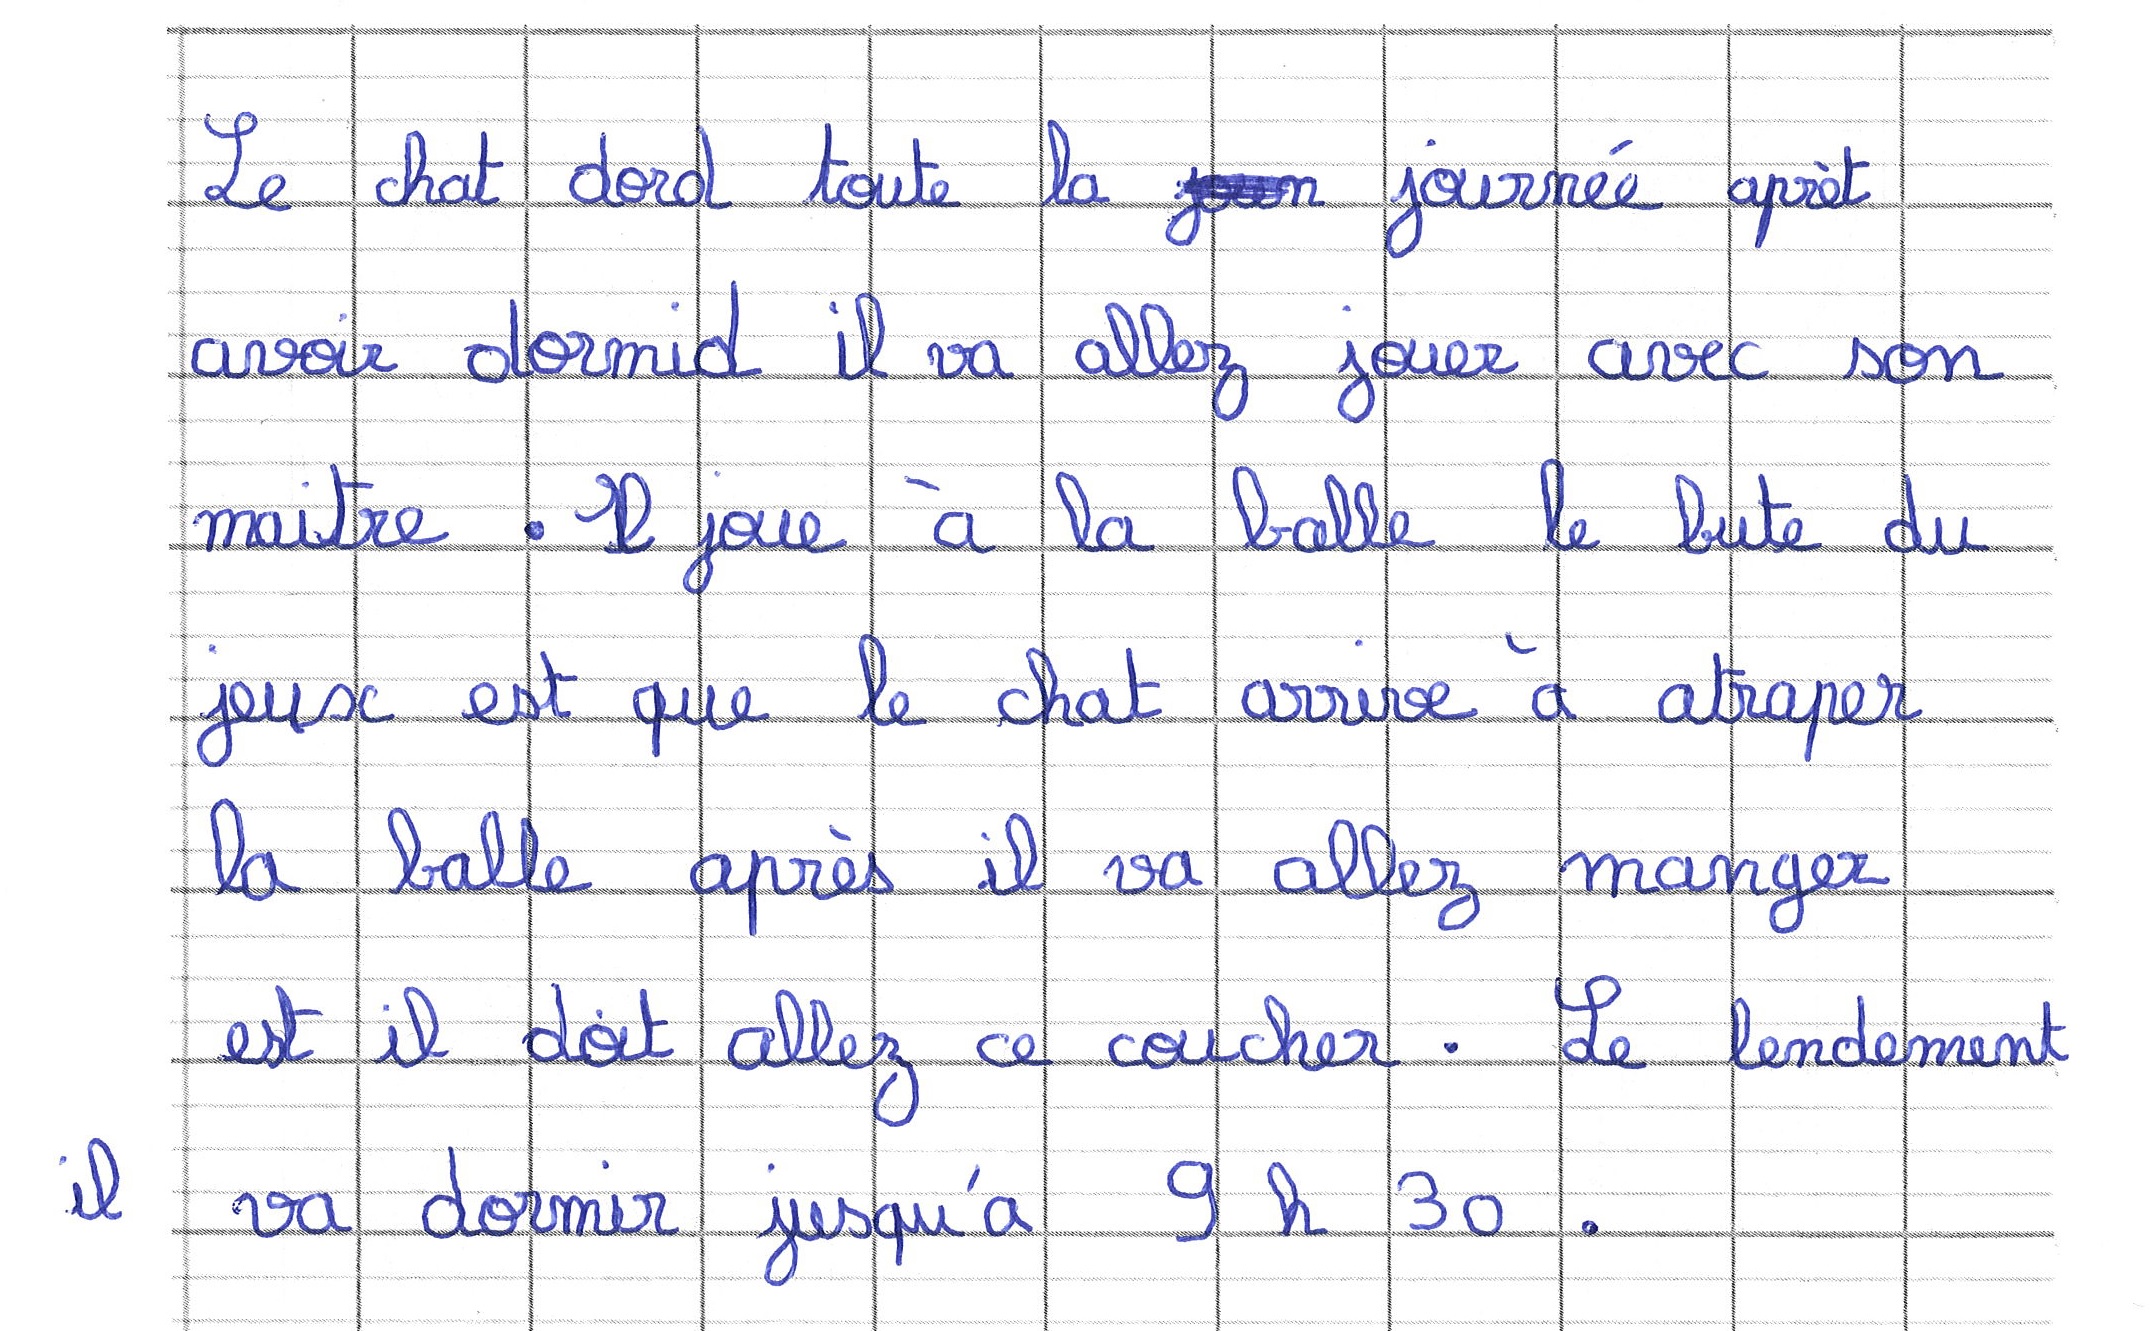 Le chat dord toute la journée aprèt
avoir dormid il va allez jouer avec son
maitre . Il joue à la balle le bute du
jeux est que le chat arrive à atraper
la balle après il va allez manger
est il doit allez ce coucher . Le lendement
il va dormir jusqu'a 9 h 30 .